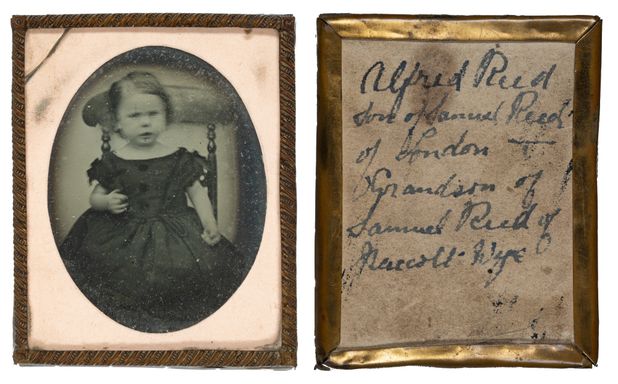 Alfred Reed
Son of Samuel Reed
of London
Grandson of
Samuel Reed of